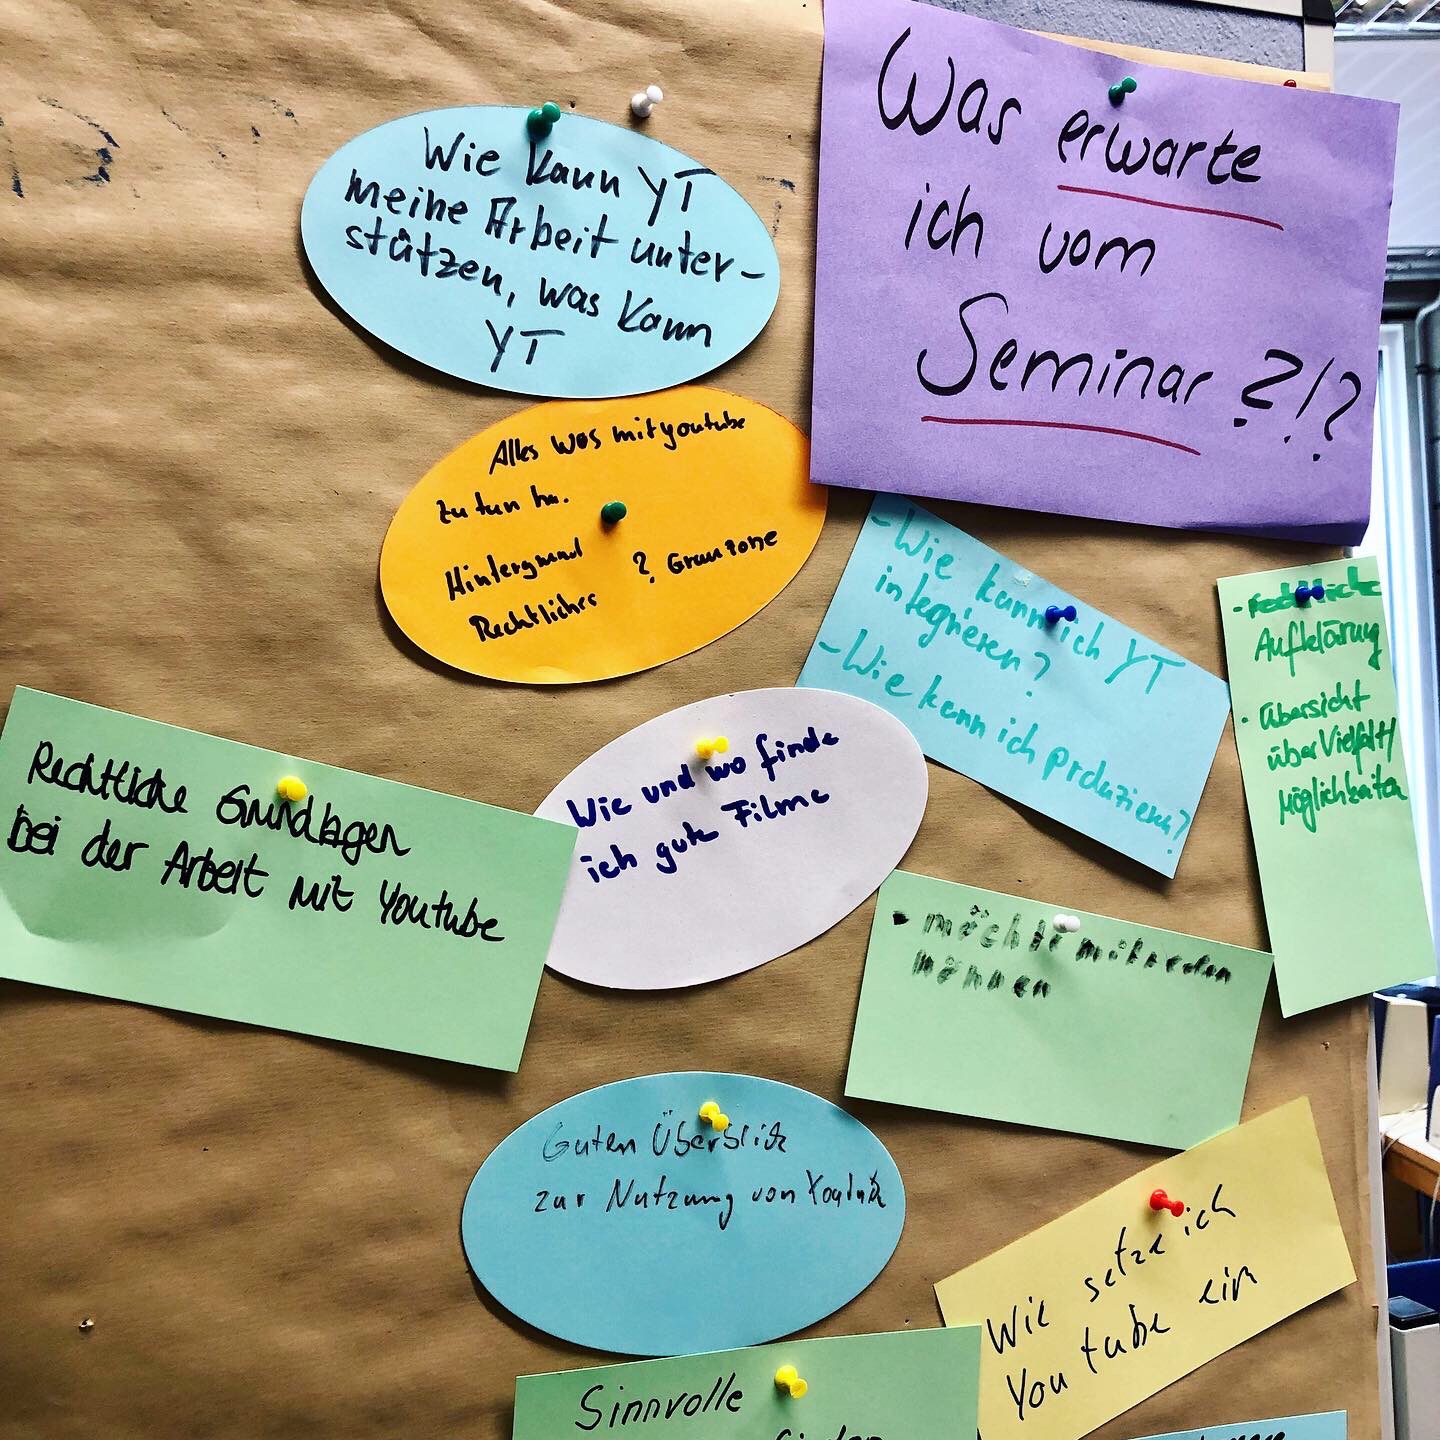 Was erwarte
ich vom
Seminar ?!?
Wie kann YT
meine Arbeit unter-
stützen, was kann
YT
Alles was mit youtube
zu tun ha.
Hintergrund
Rechtliches
? Grauzone
- Wie kann ich YT
integrieren?
- Wie kann ich produzieren?
Aufklärung
• Übersicht
über Vielfalt/
Möglichkeiten
Rechtliche Grundlagen
bei der Arbeit mit Youtube
Wie und wo finde
ich gute Filme
• möchte mitreden
können
Guten Überblick
zur Nutzung von
Wie setze ich
Youtube ein
Sinnvolle